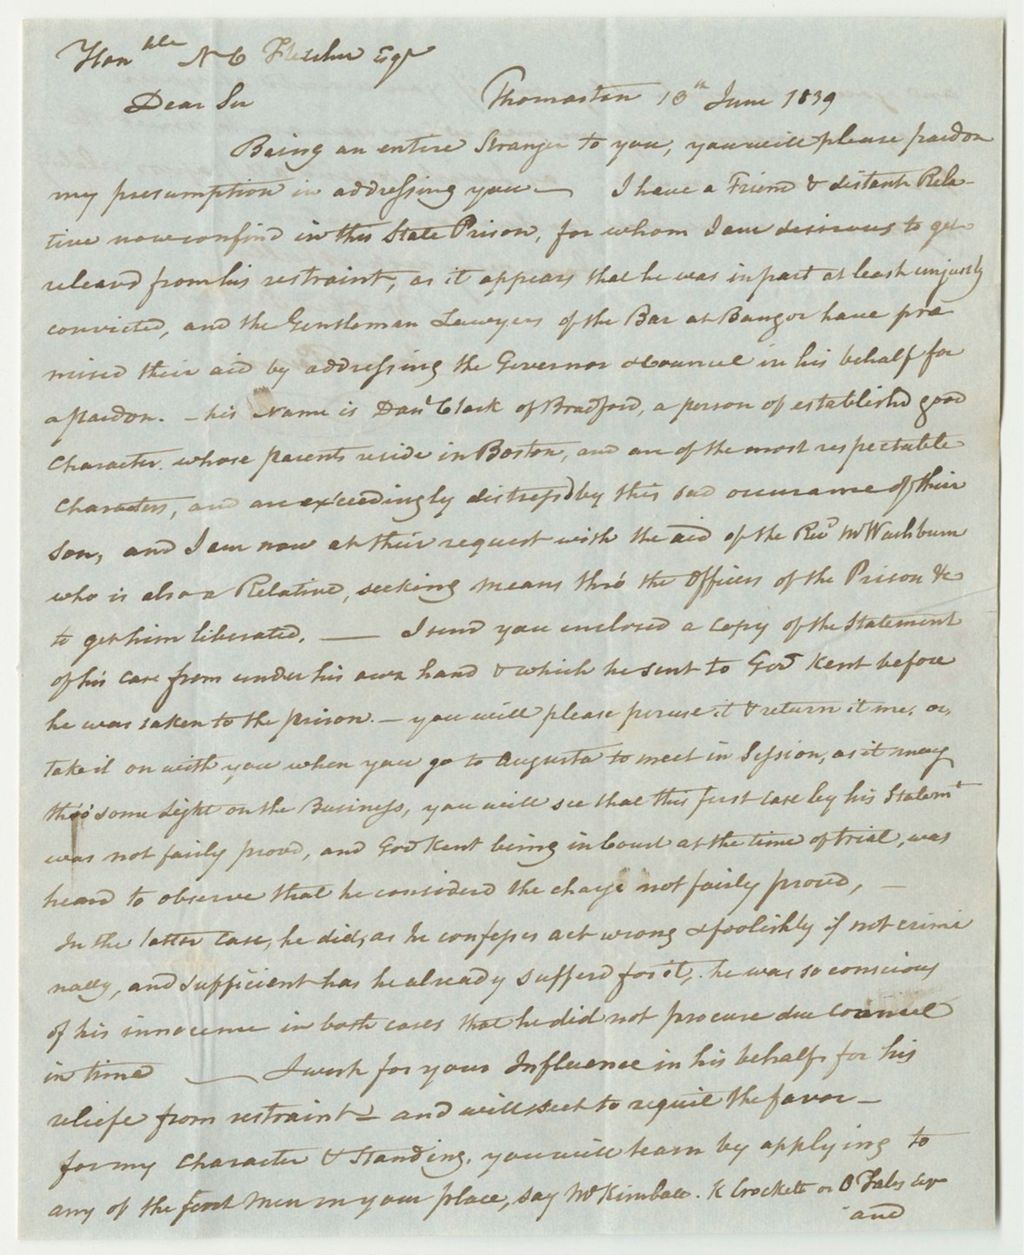 Honble N C Fletcher Esqr
Dear Sir Thomaston 18th June 1839
Being an entire Stranger to you, you will please pardon
my presumption in addressing you — I have a Friend & distant Rela-
tive now confind in this State Prison, for whom I am desirous to get
releasd from his restraint, as it appears that he was in part at least unjustly
convicted, and the Gentleman Lawyers of the Bar at Bangor have pro
mised their aid by addressing the Governor & Councel in his behalf for
a pardon. — his Name is Danl Clark of Bradford, a person of establishd good
Character. whose parents reside in Boston, and are of the most respectable
Characters, and are exceedingly distressd by this sad occurance of their
Son, and I am now at their request with the aid of the Revd Mr Washburn
who is also a Relative, seeking means thro' the Officers of the Prison &c
to get him liberated. — I send you enclosed a Copy of the Statement
of his Case from under his own hand & which he sent to Govr Kent before
he was taken to the prison. — you will please peruse it & return it me, or,
take it on with you when you go to Augusta to meet in Session, as it may
thro' some Light on the Business, you will see that this first Case by his Statemt
was not fairly provd, and Govr Kent being in Court at the time of trial, was
heard to observe that he considerd the charge not fairly provd, —
In the latter Case, he did, as he confesses act wrong & foolishly if not crimi
nally, and sufficient has he already sufferd for it, he was so conscious
of his innocence in both cases that he did not procure due Councel
in time — I wish for your Influence in his behalf, for his
reliefe from restraint — and will seek to requit the favor —
for my Character & Standing, you will learn by applying to
any of the first Men in your place, say Mr Kimball. K Crockett or O Fales Esqr
and